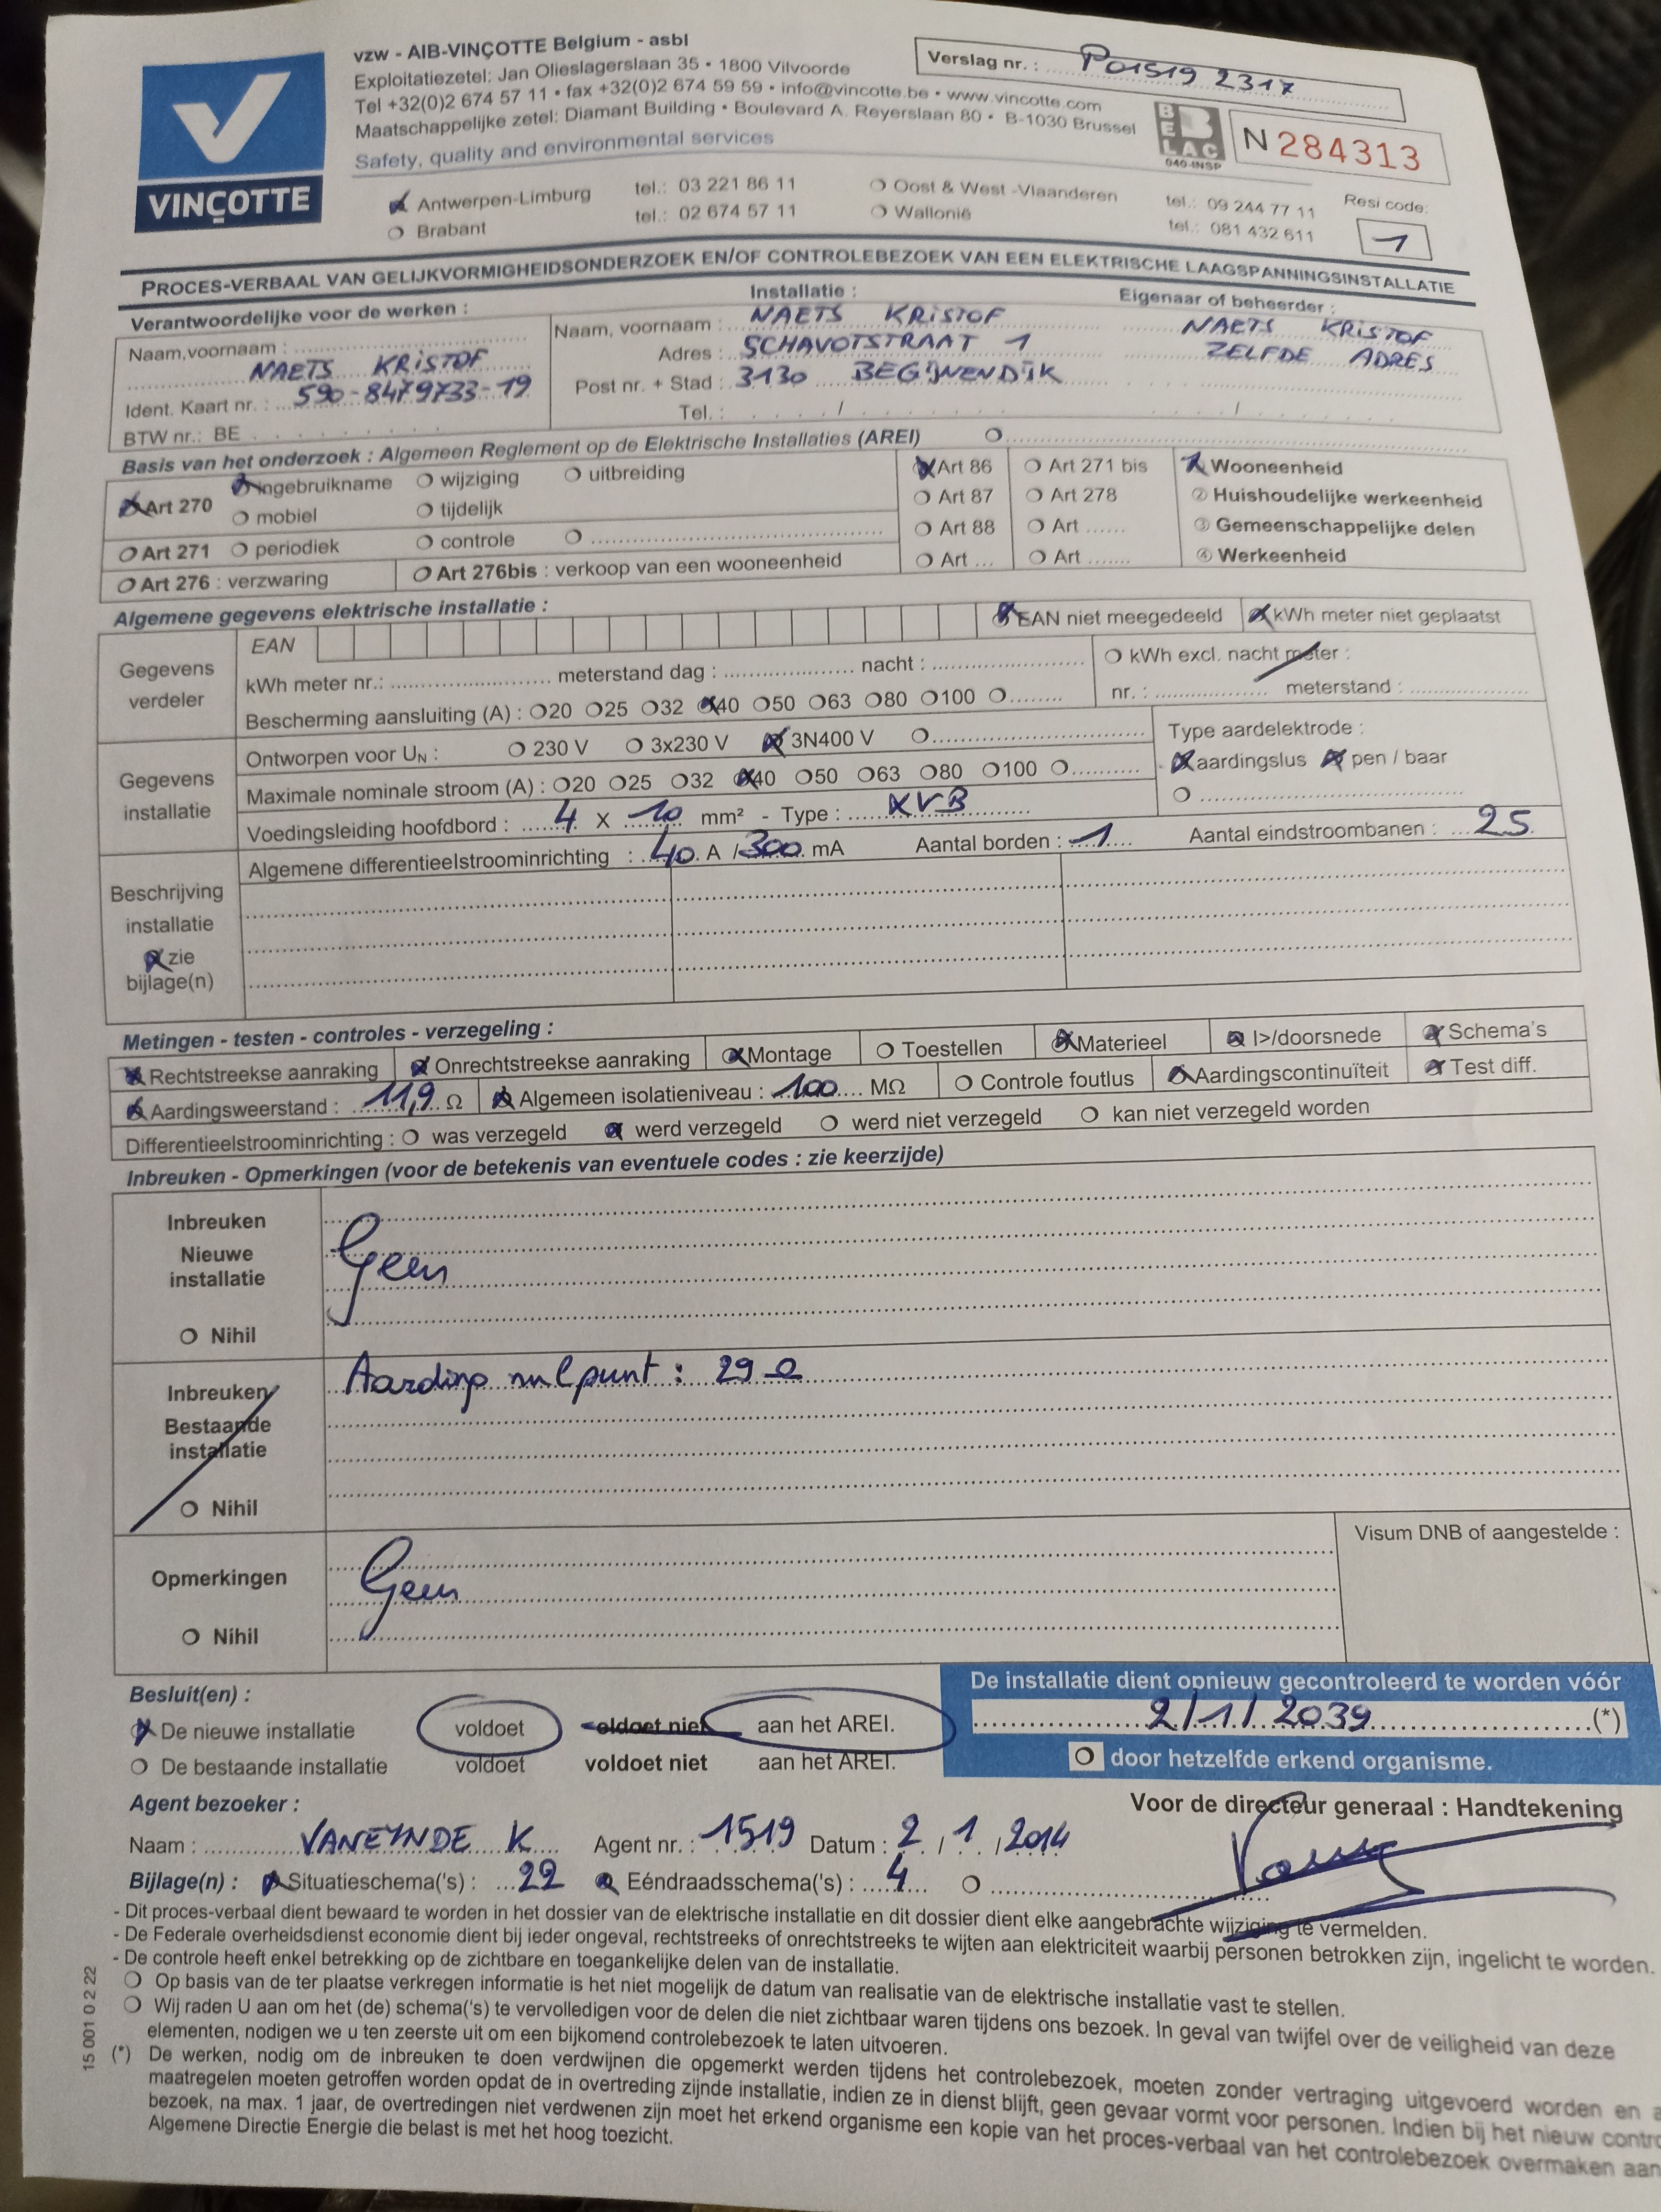 vzw - AIB-VINÇOTTE Belgium - asbl
Exploitatiezetel: Jan Olieslagerslaan 35 • 1800 Vilvoorde
Tel +32(0)2 674 57 11 • fax +32(0)2 674 59 59 • info@vincotte.be • www.vincotte.com
Maatschappelijke zetel: Diamant Building • Boulevard A. Reyerslaan 80 • B-1030 Brussel
Safety, quality and environmental services
VINÇOTTE
Verslag nr. : P01519 2317
BELAC
040-INSP
N 284313
Antwerpen-Limburg tel.: 03 221 86 11 Oost & West -Vlaanderen tel.: 09 244 77 11
Brabant tel.: 02 674 57 11 Wallonië tel.: 081 432 611
Resi code: 1
PROCES-VERBAAL VAN GELIJKVORMIGHEIDSONDERZOEK EN/OF CONTROLEBEZOEK VAN EEN ELEKTRISCHE LAAGSPANNINGSINSTALLATIE
Verantwoordelijke voor de werken :
Naam,voornaam :
NAETS KRISTOF
Ident. Kaart nr. : 590-8479733-19
BTW nr.: BE
Installatie :
Naam, voornaam : NAETS KRISTOF
Adres : SCHAVOTSTRAAT 1
Post nr. + Stad : 3130 BEGIJNENDIJK
Tel. : /
Eigenaar of beheerder :
NAETS KRISTOF
ZELFDE ADRES
/
Basis van het onderzoek : Algemeen Reglement op de Elektrische Installaties (AREI)
Art 270 ingebruikname wijziging uitbreiding
mobiel tijdelijk
Art 271 periodiek controle
Art 276 : verzwaring Art 276bis : verkoop van een wooneenheid
Art 86 Art 271 bis 1 Wooneenheid
Art 87 Art 278 2 Huishoudelijke werkeenheid
Art 88 Art ...... 3 Gemeenschappelijke delen
Art ... Art ....... 4 Werkeenheid
Algemene gegevens elektrische installatie :
Gegevens verdeler
EAN EAN niet meegedeeld kWh meter niet geplaatst
kWh meter nr.: meterstand dag : nacht : kWh excl. nacht meter :
Bescherming aansluiting (A) : 20 25 32 40 50 63 80 100 nr. : meterstand :
Gegevens installatie
Ontworpen voor UN : 230 V 3x230 V 3N400 V Type aardelektrode :
Maximale nominale stroom (A) : 20 25 32 40 50 63 80 100 aardingslus pen / baar
Voedingsleiding hoofdbord : 4 X 10 mm² - Type : XVB
Algemene differentieelstroominrichting : 40 A / 300 mA Aantal borden : 1 Aantal eindstroombanen : 25
Beschrijving
installatie
zie
bijlage(n)
Metingen - testen - controles - verzegeling :
Rechtstreekse aanraking Onrechtstreekse aanraking Montage Toestellen Materieel I>/doorsnede Schema's
Aardingsweerstand : 11,9 Ω Algemeen isolatieniveau : 100 MΩ Controle foutlus Aardingscontinuïteit Test diff.
Differentieelstroominrichting : was verzegeld werd verzegeld werd niet verzegeld kan niet verzegeld worden
Inbreuken - Opmerkingen (voor de betekenis van eventuele codes : zie keerzijde)
Inbreuken
Nieuwe
installatie
Nihil
Geen
Inbreuken
Bestaande
installatie
Nihil
Aarding nulpunt : 29 Ω
Opmerkingen
Nihil
Geen
Visum DNB of aangestelde :
Besluit(en) :
De nieuwe installatie voldoet voldoet niet aan het AREI.
De bestaande installatie voldoet voldoet niet aan het AREI.
De installatie dient opnieuw gecontroleerd te worden vóór
2/1/2039 (*)
door hetzelfde erkend organisme.
Agent bezoeker :
Voor de directeur generaal : Handtekening
Naam : VANEYNDE K Agent nr. : 1519 Datum : 2 / 1 / 2014
Bijlage(n) : Situatieschema('s) : 22 Eéndraadsschema('s) : 4
- Dit proces-verbaal dient bewaard te worden in het dossier van de elektrische installatie en dit dossier dient elke aangebrachte wijziging te vermelden.
- De Federale overheidsdienst economie dient bij ieder ongeval, rechtstreeks of onrechtstreeks te wijten aan elektriciteit waarbij personen betrokken zijn, ingelicht te worden.
- De controle heeft enkel betrekking op de zichtbare en toegankelijke delen van de installatie.
Op basis van de ter plaatse verkregen informatie is het niet mogelijk de datum van realisatie van de elektrische installatie vast te stellen.
Wij raden U aan om het (de) schema('s) te vervolledigen voor de delen die niet zichtbaar waren tijdens ons bezoek. In geval van twijfel over de veiligheid van deze
elementen, nodigen we u ten zeerste uit om een bijkomend controlebezoek te laten uitvoeren.
(*) De werken, nodig om de inbreuken te doen verdwijnen die opgemerkt werden tijdens het controlebezoek, moeten zonder vertraging uitgevoerd worden en a
maatregelen moeten getroffen worden opdat de in overtreding zijnde installatie, indien ze in dienst blijft, geen gevaar vormt voor personen. Indien bij het nieuw contro
bezoek, na max. 1 jaar, de overtredingen niet verdwenen zijn moet het erkend organisme een kopie van het proces-verbaal van het controlebezoek overmaken aan
Algemene Directie Energie die belast is met het hoog toezicht.
15 001 0 2 22